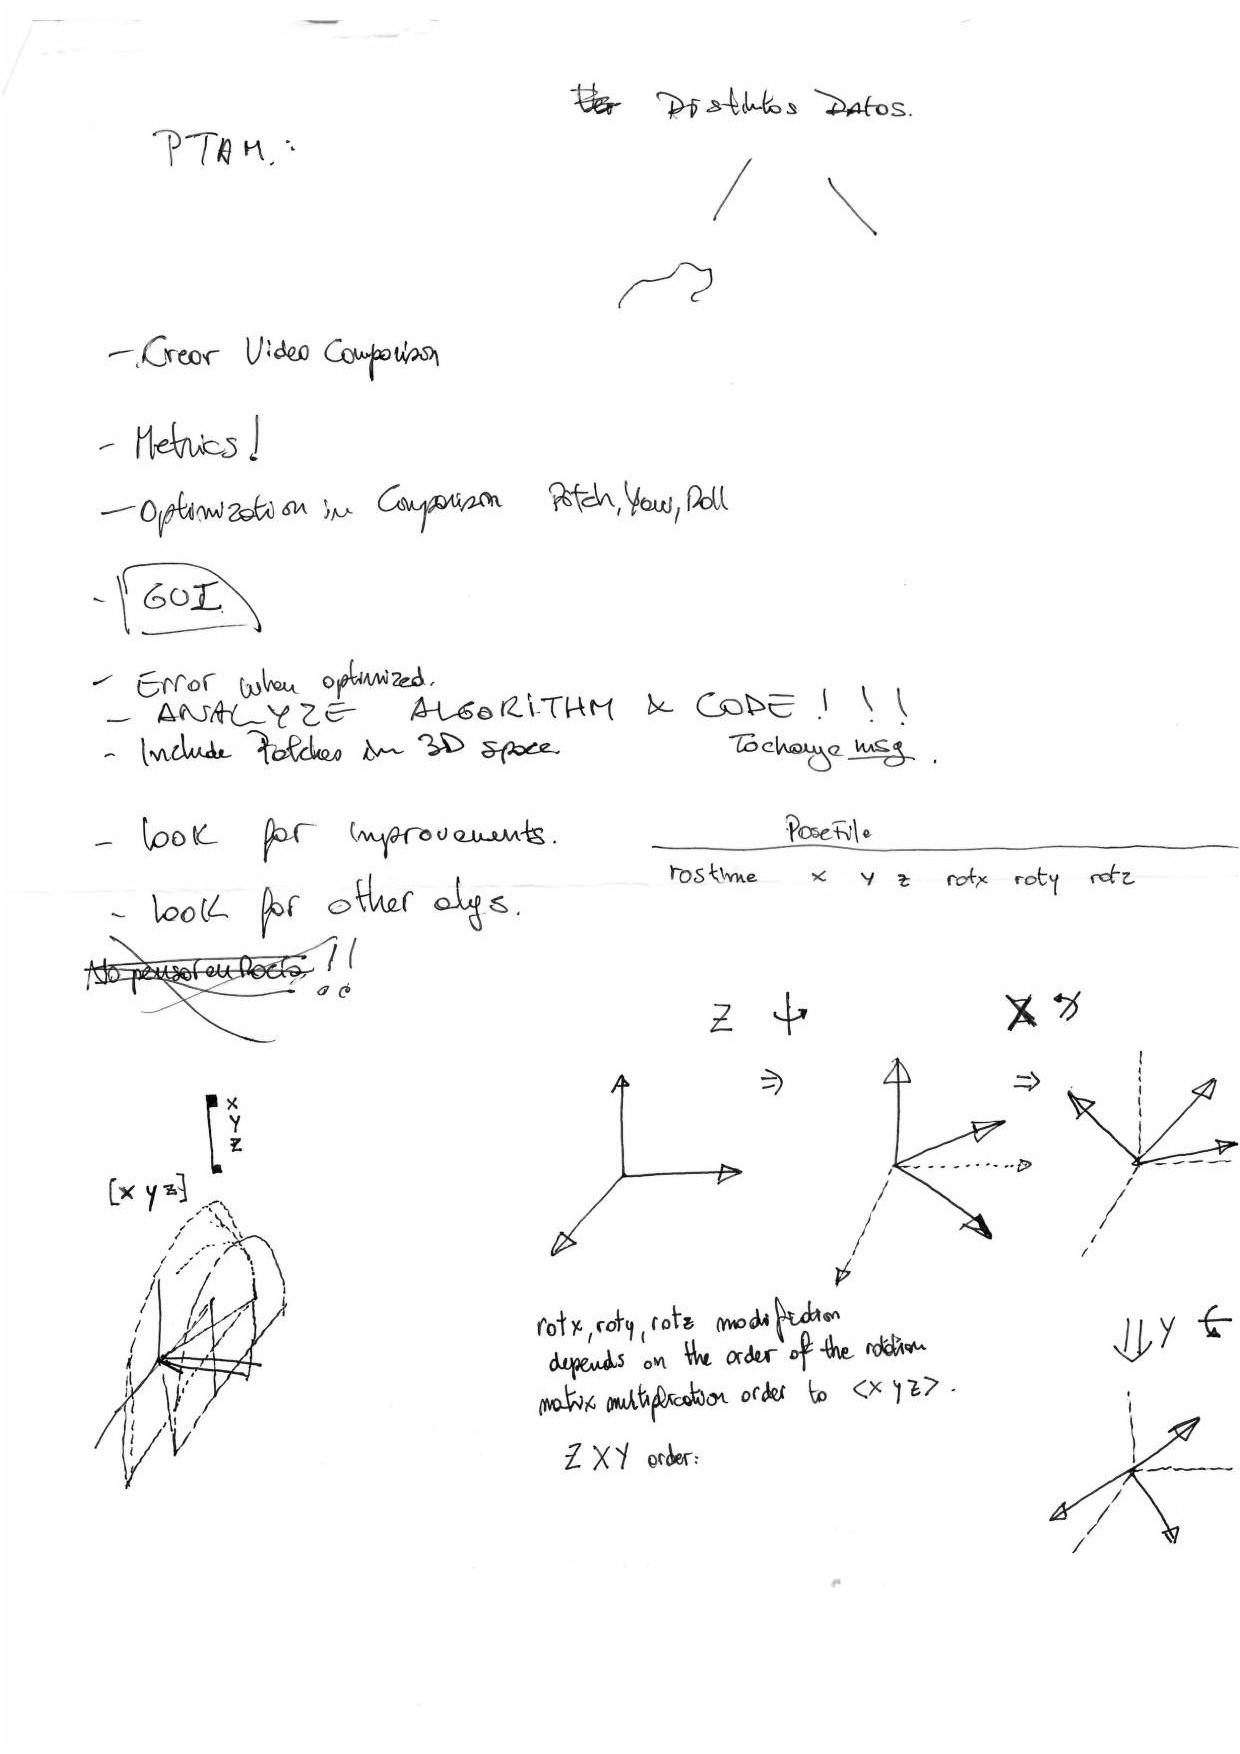 Distintos Datos.
PTAM.:
- Crear Video Comparison
- Metrics!
- Optimization in Comparison Pitch, Yaw, Roll
- GUI
- Error when optimized.
- ANALYZE ALGORITHM & CODE!!!
- Include Patches in 3D space
To change msg.
- look for improvements.
PoseFile
rostime x y z rotx roty rotz
- look for other algs.
!!
Z
X
⇒
⇒
x
y
z
[x y z]
rotx, roty, rotz modifiction
depends on the order of the rotation
matrix multiplication order to <x y z>.
Y
Z X Y order: